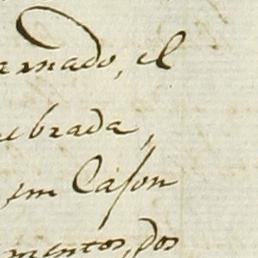 rnado, el
ebrada,
en Cason
mentos, dos